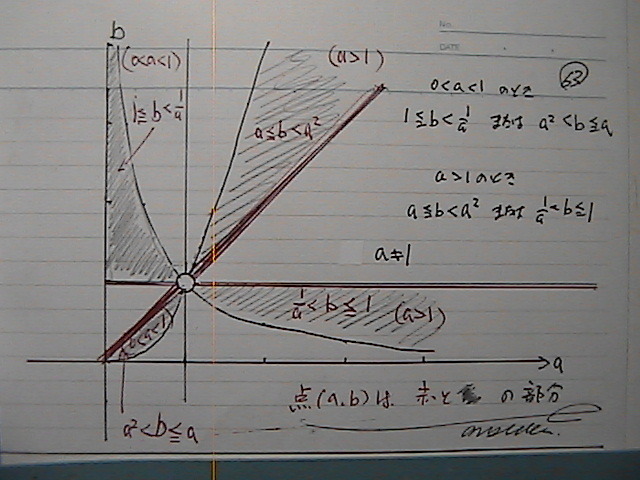 No.
DATE
b
(0<a<1)
1≦b<1/a
(a>1)
a≦b<a²
63
0<a<1 のとき
1≦b<1/a または a²<b≦a
a>1のとき
a≦b<a² または 1/a<b≦1
a≠1
1/a<b≦1 (a>1)
(0<a<1)
a
点(a,b)は 赤と の部分
a²<b≦a